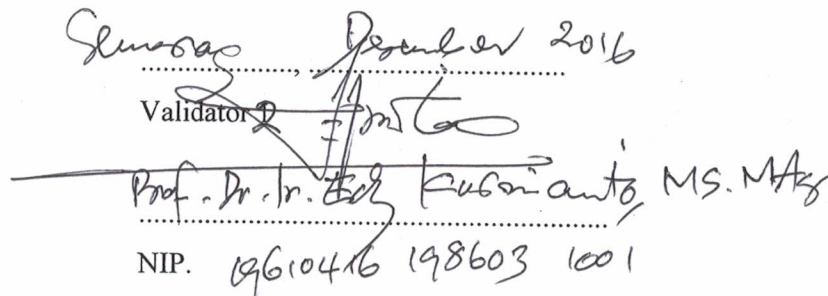 Semarang, Desember 2016
Validator 2
Prof. Dr. Ir. Edy Kusmanto, MS. MAgr
NIP. 19610416 198603 1001